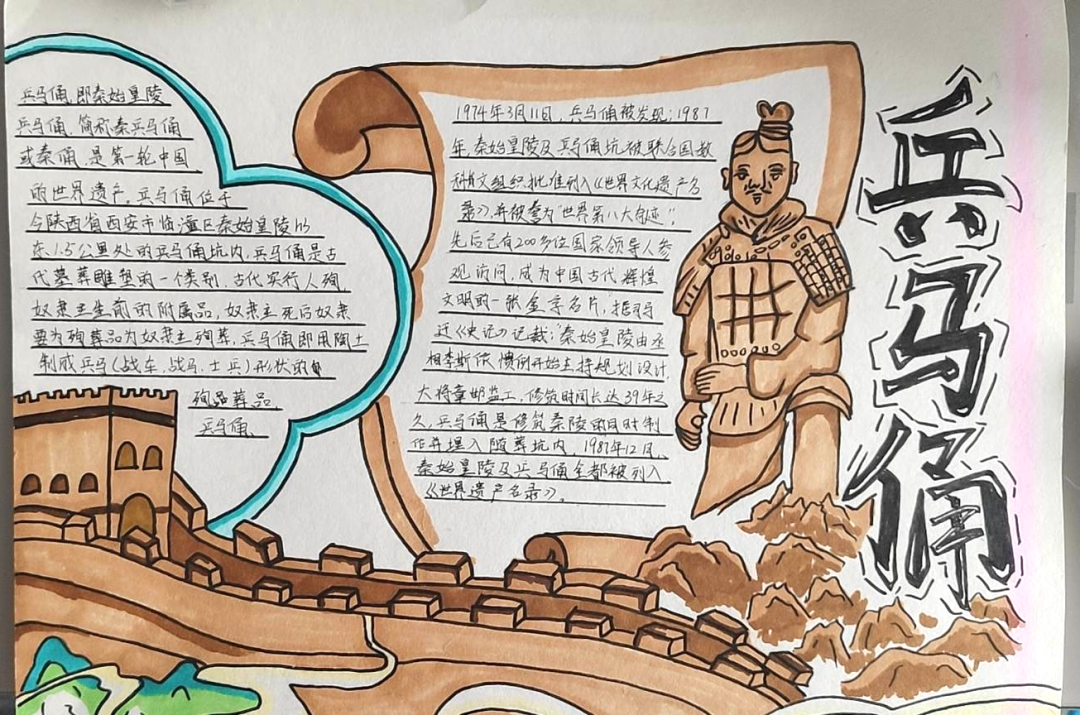 兵马俑,即秦始皇陵
兵马俑,简称秦兵马俑
或秦俑,是第一轮中国
的世界遗产,兵马俑位于
今陕西省西安市临潼区秦始皇陵以
东1.5公里处的兵马俑坑内,兵马俑是古
代墓葬雕塑的一个类别,古代实行人殉
奴隶主生前的附属品,奴隶主死后奴隶
要为殉葬品为奴隶主殉葬,兵马俑即用陶土
制成兵马(战车、战马、士兵)形状的
殉品葬品
兵马俑
1974年3月11日,兵马俑被发现;1987
年,秦始皇陵及兵马俑坑被联合国教
科文组织批准列入《世界文化遗产名
录》,并被誉为"世界第八大奇迹",
先后已有200多位国家领导人参
观访问,成为中国古代辉煌
文明的一张金字名片,据
《史记》记载:秦始皇陵由丞
相李斯依惯例开始主持规划设计
大将章邯监工,修筑时间长达39年之
久,兵马俑是修筑秦陵的同时制
作并埋入随葬坑内,1987年12月,
秦始皇陵及兵马俑全都被列入
《世界遗产名录》。
兵马俑